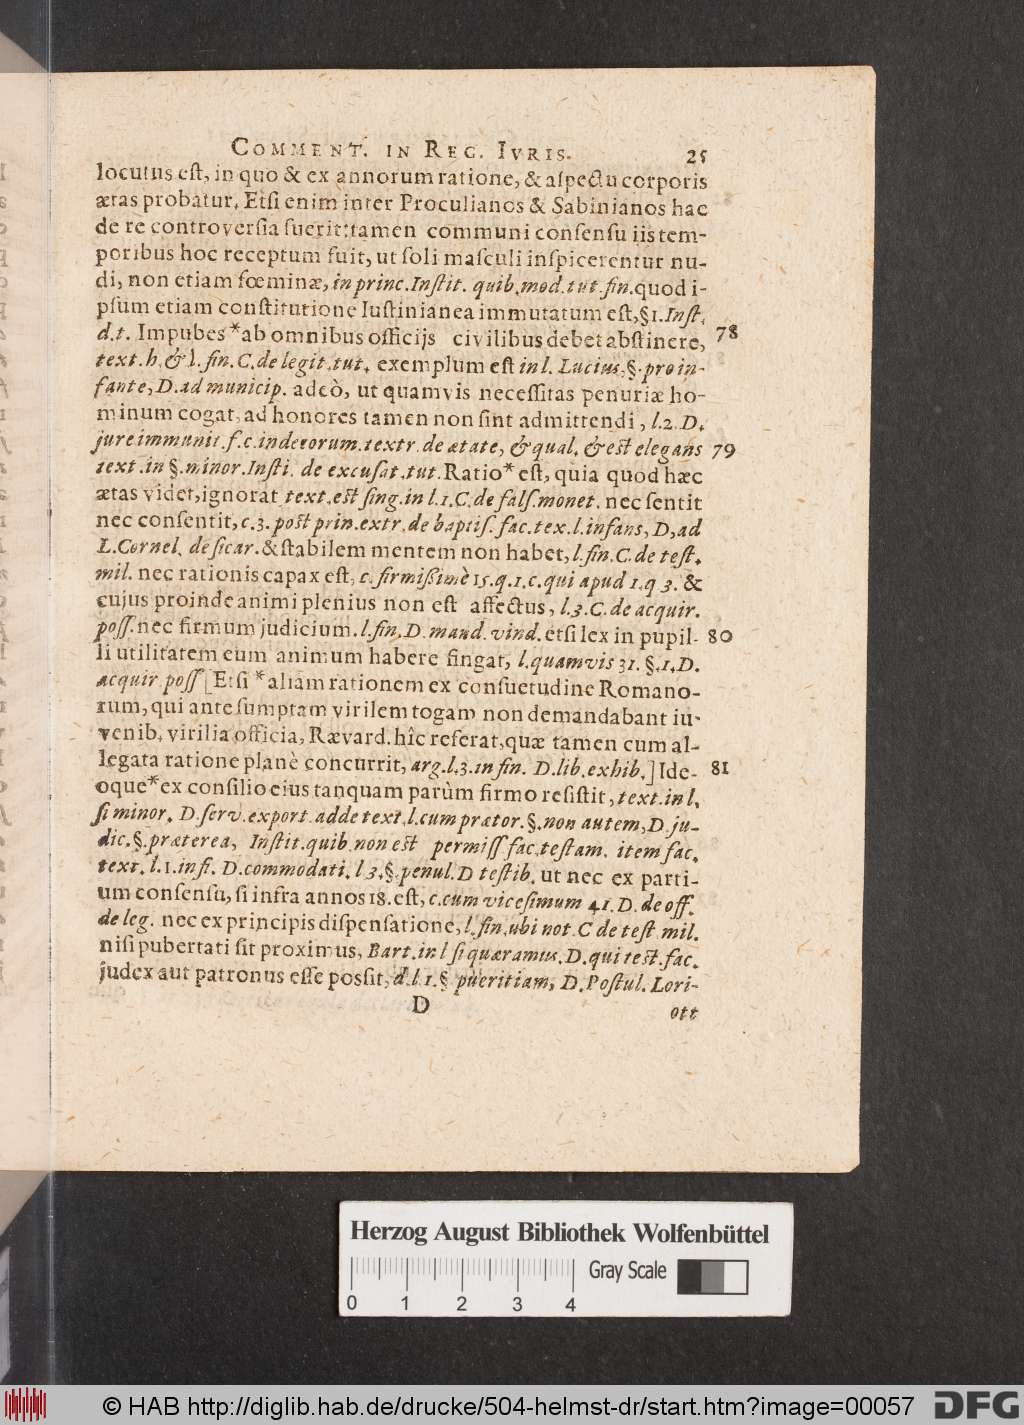 COMMENT. IN REG. IVRIS. 25
locutus eſt, in quo & ex annorum ratione, & aſpectu corporis
ætas probatur. Etſi enim inter Proculianos & Sabinianos hac
de re controverſia fuerit: tamen communi conſenſu iis tem-
poribus hoc receptum fuit, ut ſoli maſculi inſpicerentur nu-
di, non etiam fœminæ, in princ. Inſtit. quib. mod. tut. fin. quod i-
pſum etiam conſtitutione Iuſtinianea immutatum eſt, §1. Inſt.
d.t. Impubes * ab omnibus officijs civilibus debet abſtinere, 78
text. h. & l. fin. C. de legit. tut. exemplum eſt in l. Lucius. §. pro in-
fante, D. ad municip. adeò, ut quamvis neceſſitas penuriæ ho-
minum cogat, ad honores tamen non ſint admittendi, l. 2. D.
jure immunit. f. c. indecorum. textr. de ætate, & qual. & eſt elegans 79
text. in §. minor. Inſti. de excuſat. tut. Ratio * eſt, quia quod hæc
ætas videt, ignorat text. eſt ſing. in l. 1. C. de falſ. monet. nec ſentit
nec conſentit, c. 3. poſt prin. extr. de baptiſ. fac. tex. l. infans, D, ad
L. Cornel. de ſicar. & ſtabilem mentem non habet, l. fin. C. de teſt.
mil. nec rationis capax eſt, c. firmißimè 15. q. 1. c. qui apud 1. q 3. &
cujus proinde animi plenius non eſt affectus, l. 3. C. de acquir.
poſſ. nec firmum judicium. l. fin. D. mand. vind. etſi lex in pupil- 80
li utilitatem eum animum habere fingat, l. quamvis 31. §. 1. D.
acquir poſſ [Etſi * aliam rationem ex conſuetudine Romano-
rum, qui ante ſumptam virilem togam non demandabant iu-
venib. virilia officia, Rævard. hîc referat, quæ tamen cum al-
legata ratione planè concurrit, arg. l. 3. in fin. D. lib. exhib.] Ide- 81
oque * ex conſilio eius tanquam parùm firmo reſiſtit, text. in l.
ſi minor. D. ſerv. export. adde text. l. cum prætor. §. non autem, D. ju-
dic. §. præterea, Inſtit. quib. non eſt permiſſ fac. teſtam. item fac.
text. l. 1. in fi. D. commodati. l 3. §. penul. D teſtib. ut nec ex parti-
um conſenſu, ſi infra annos 18. eſt, c. cum viceſimum 41. D. de off.
de leg. nec ex principis diſpenſatione, l. fin. ubi not. C de teſt mil.
niſi pubertati ſit proximus, Bart. in l ſi quæramus. D. qui teſt. fac.
judex aut patronus eſſe poſſit, d. l 1. § pueritiam, D. Poſtul. Lori-
D ott
Herzog August Bibliothek Wolfenbüttel
0 1 2 3 4 Gray Scale
© HAB http://diglib.hab.de/drucke/504-helmst-dr/start.htm?image=00057 DFG